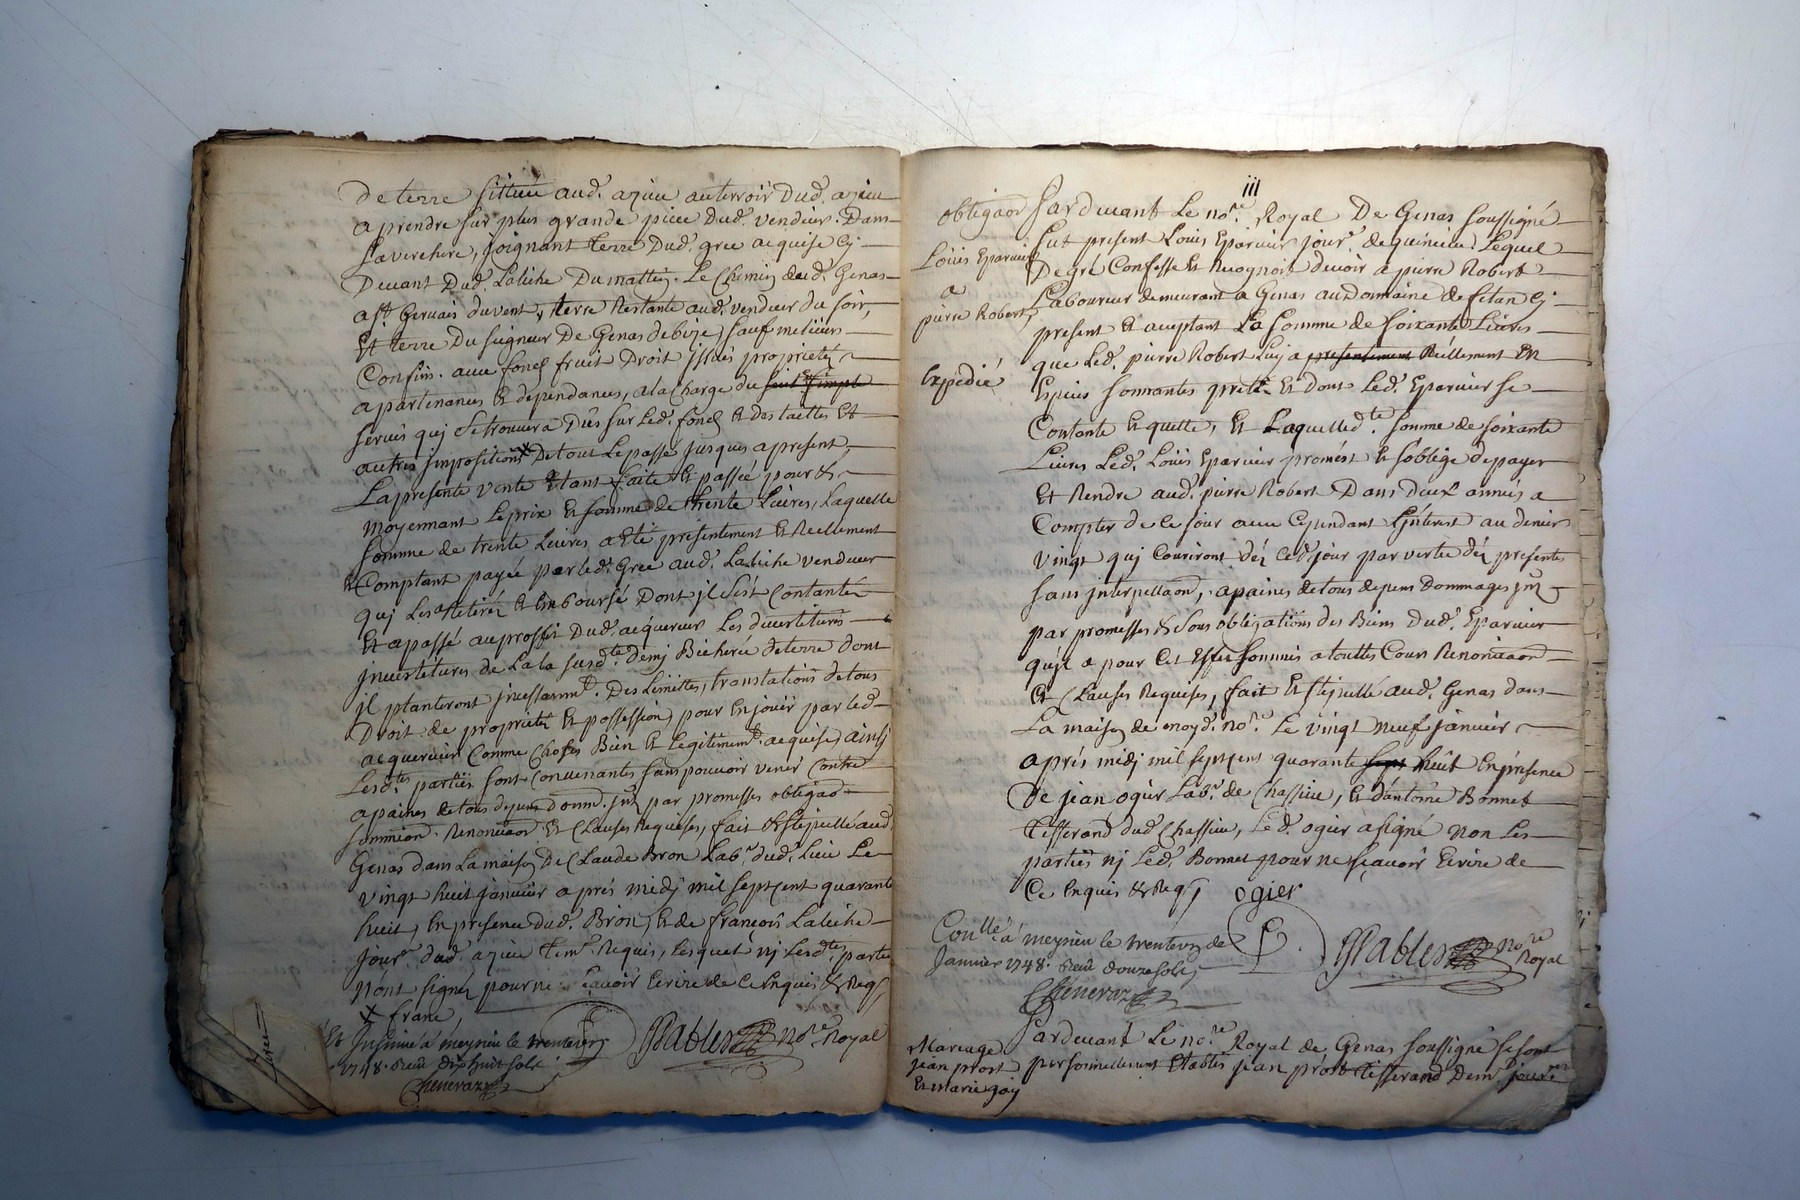 de terre sittuée aud. azieu au terroir dud. azieu
a prendre sur plus grande piece dud. vendeur. Dans
La verchere, joignant terre dud. gree acquise cy
Devant dud. Laliche du mattin. Le Chemin dud. Genas
a st Gervais du vent, terre Restante aud. vendeur du soir,
Et terre du seigneur De Genas de bize, sauf meilieurs
Confins. avec fond fruit Droit jssües proprietés
apartenances et dependances, a la Charge du
servis quj se trouvera Dûs sur Led. fond et des taittes et
autres jmpositions x De tout Le passé jusques a present,
La presente vente Etant faite et passée pour &
moyennant Le prix et somme de trente Livres, Laquelle
somme de trente Livres a eté presentement et Reellement
et Comptant payée par led. Gree aud. Laliche vendeur
quj Les a Retirés et Emboursé Dont jl s'est Contanté
Et a passé au proffit Dud. acquereur Les devertitures
jnvertitures de La susdte. demj Bicherée de terre dont
jl planteront jncessamt. Des Limittes, translations de tous
Droit de proprieté et possession pour En joüir par led.
acquereur Comme Choses Bien et legitimemt. acquise, ainsj
Lesdtes. partiës sont Convenantes sans pouvoir venir Contre
a paines de tous depens domm. jnt. par promesses obligaõ
soumiõn. Renonciaõn et Clauses Requises, fait et stipullé aud.
Genas dans La maison De Claude Bron Labr. dud. Lieu Le
vingt huit janvier aprés midj mil septcent quarante
huit, En presence dud. Bron, et de françois Laliche
jourr. dud. azieu temt. Requis, lesquels nj Lesdtes. parties
n'ont signés pour ne sçavoir Ecrire de ce Enquis & Req.
x franc,
Insinué a meyzieu le trente un
1748. Reçu dix huit sols.
Cheneraz
PRables nore. Royal
iii
obligaõn
Louis Eparvier
a
pierre Robert,
Expedié
Pardevant Le nore. Royal De Genas soussigné
fut present Louis Eparvier jourr. de quincieu: Lequel
De gré Confesse et Recognoit devoir a pierre Robert
Laboureur demeurant a Genas au Domaine de Sitan cj
present et acceptant La somme de soixante Livres
que Led. pierre Robert Luj a presentement Réellement En
Especes sonnantes pretté et dont Led. Eparvier se
Contante et quitte, et Laquelledte. somme de soixante
Livres Led. Loüis Eparvier promést et s'oblige de payer
et Rendre aud. pierre Robert Dans deux années a
Compter de ce jour avec Cependant L'jnterest au denier
vingt quj Couriront déz ce d. jour par vertu déz presentes
sans jnterpellaõn, a paines de tous depens dommages jnt.
par promesses & sous obligatiöns des Biens Dud. Eparvier
qu'jl a pour Cet Effet soummis a touttes Cours Renonciaõn
et Clauses Requises, fait et stipullé aud. Genas dans
La maison de moyd. nore. Le vingt neuf janvier
aprés midj mil septcent quarante sept huit En présence
De jean ogier Labr. de Chassieu, et d'antoine Bonnet
tisserand dud. Chassieu, Led. ogier a signé non Les
partiës nj Led. Bonnet pour ne sçavoir Ecrire de
Ce Enquis & Req.
ogier
Conllé. a meyzieu le trente un de
Janvier 1748. Reçu douze sols,
Cheneraz
PRables nore. Royal
Mariage
jean prost
Et marie
Pardevant Le nore. Royal de Genas soussigné se sont
personnellement Etablis jean prost tisserand Demt.